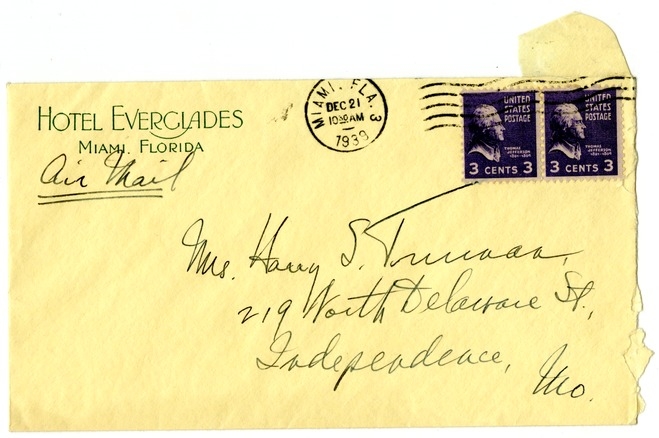 HOTEL EVERGLADES
MIAMI, FLORIDA
Air Mail
MIAMI, FLA. 3
DEC 21
10 30 AM
1939
UNITED
STATES
POSTAGE
THOMAS
JEFFERSON
1801-1809
3 CENTS 3
UNITED
STATES
POSTAGE
THOMAS
JEFFERSON
1801-1809
3 CENTS 3
Mrs. Harry S. Truman,
219 North Delaware St.,
Independence,
Mo.